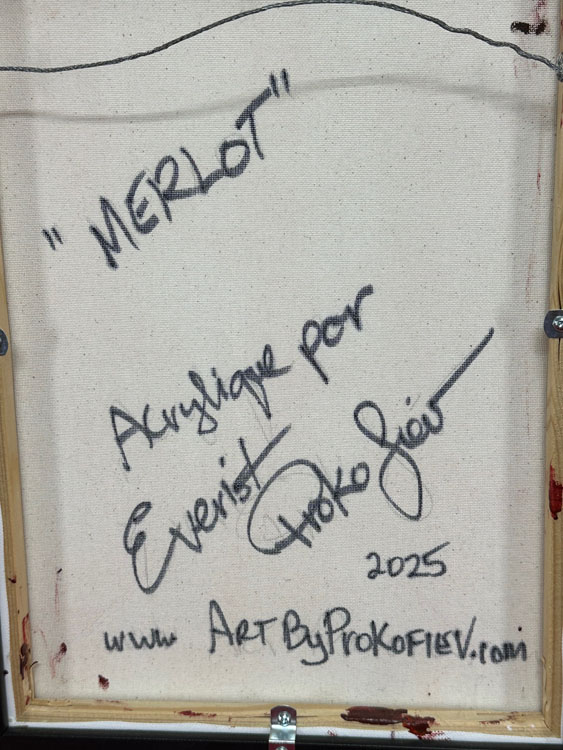 "MERLOT"
Acrylique par
Everist Prokofiev
2025
www ARTByPROKOFIEV.com